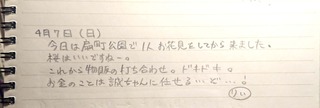 4月7日(日)
今日は扇町公園で1人お花見をしてから来ました。
桜はいいですねー。
これから物販の打ち合わせ。ドキドキ。
お金のことは誠ちゃんに任せる…ど…!
りい